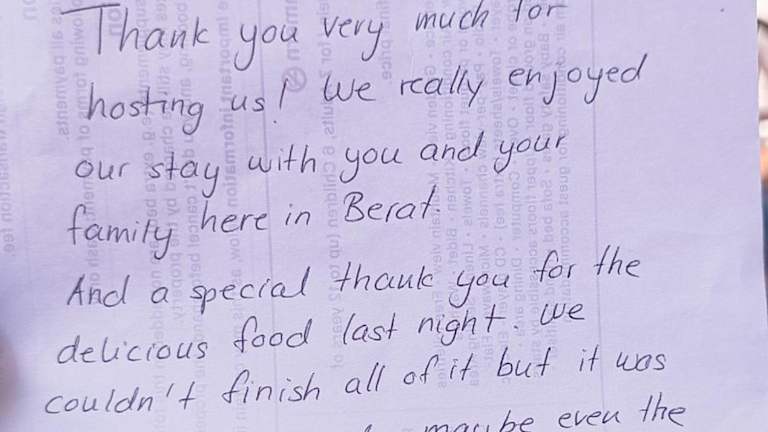 Thank you very much for
hosting us! We really enjoyed
our stay with you and your
family here in Berat.
And a special thank you for the
delicious food last night. We
couldn't finish all of it but it was
maybe even the